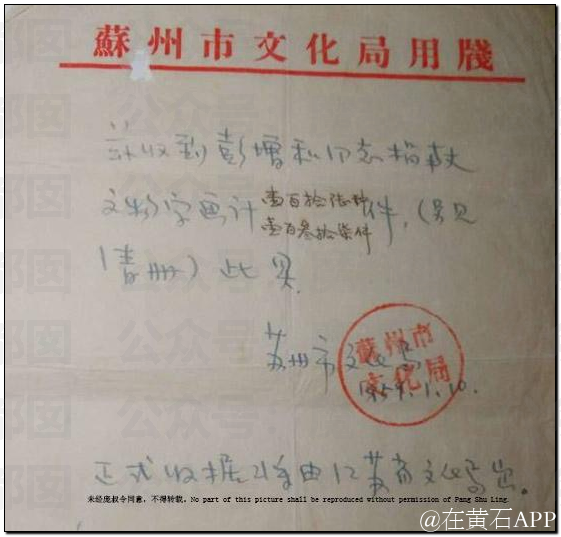 蘇州市文化局用牋
兹收到彭增和同志捐献
文物字画计壹百拾陆种件,(另见
壹百叁拾柒件
清册)此具.
苏州市文化局
蘇州市
文化局
1959.1.10.
正式收据将由江苏省文化局出。
未经庞叔令同意，不得转载。No part of this picture shall be reproduced without permission of Pang Shu Ling.
@在黄石APP